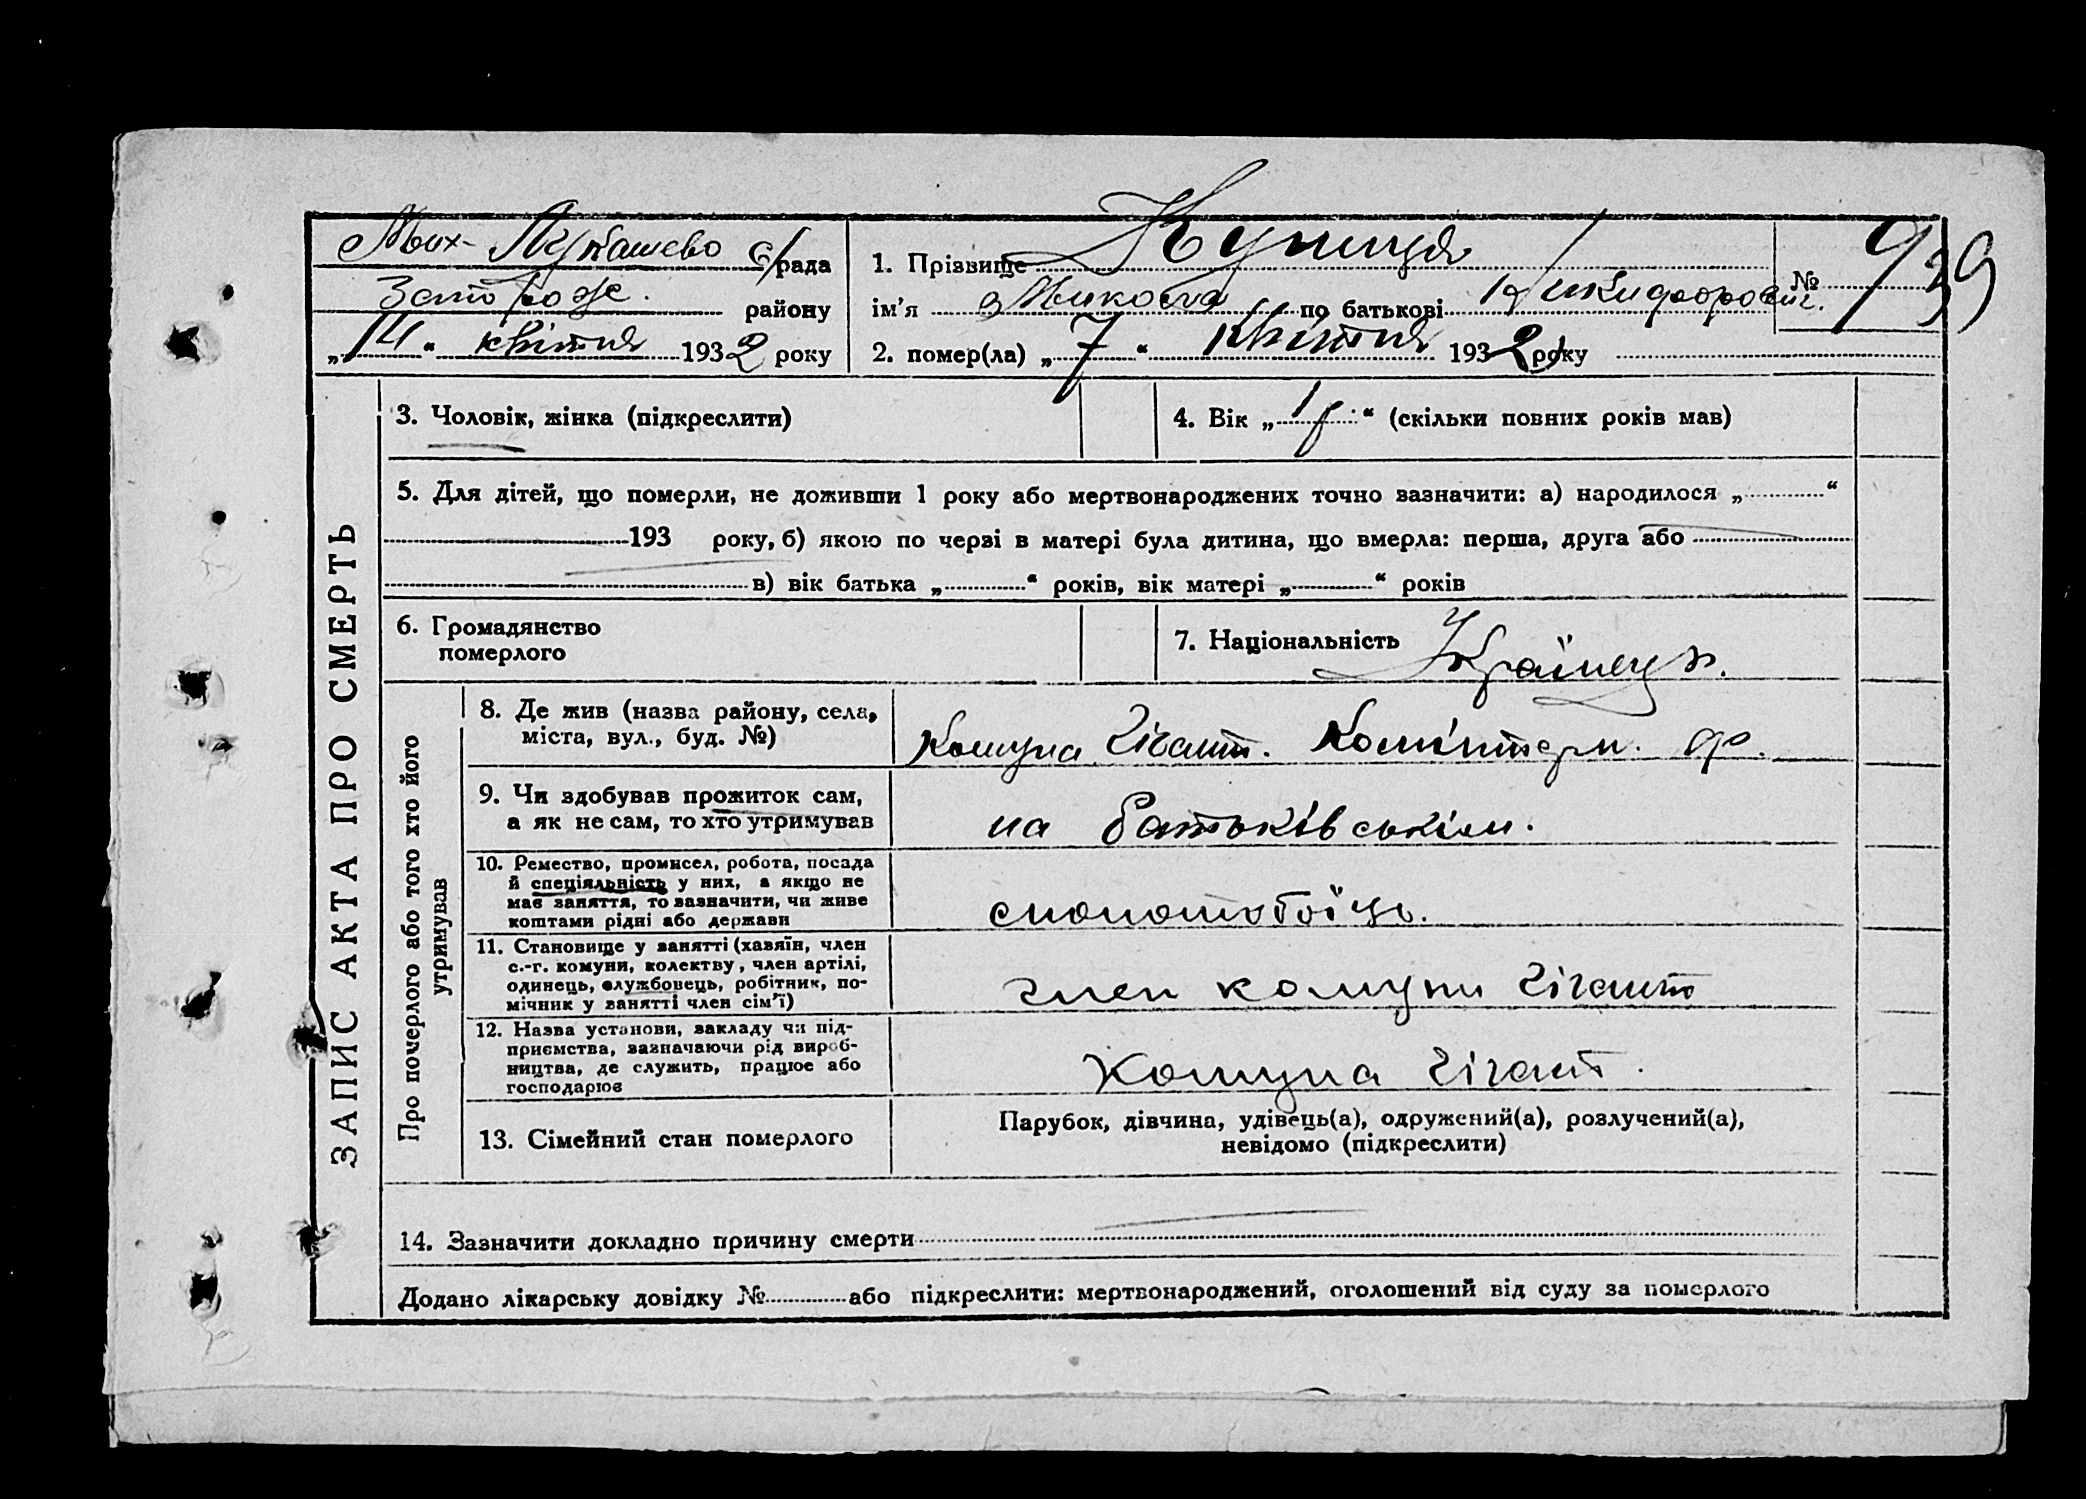 Мих- Лукашево с/рада
Запорож. району
„14“ квітня 1932 року
1. Прізвище Куниця
ім’я Микола по батькові Никифорович.
№ 9
39
2. помер(ла) „7“ квітня 1932 року
ЗАПИС АКТА ПРО СМЕРТЬ
3. Чоловік, жінка (підкреслити)
4. Вік „1 р.“ (скільки повних років мав)
5. Для дітей, що померли, не доживши 1 року або мертвонароджених точно зазначити: а) народилося „ “
193 року, б) якою по черзі в матері була дитина, що вмерла: перша, друга або
в) вік батька „ “ років, вік матері „ “ років
6. Громадянство
померлого
7. Національність Українець.
Про померлого або того хто його
утримував
8. Де жив (назва району, села,
міста, вул., буд. №)
Комуна Гігант. Комінтерн. р.
9. Чи здобував прожиток сам,
а як не сам, то хто утримував
на батьківськім.
10. Ремество, промисел, робота, посада
й спеціяльність у них, а якщо не
має заняття, то зазначити, чи живе
коштами рідні або держави
11. Становище у занятті (хазяїн, член
с.-г. комуни, колектву, член артілі,
одинець, службовець, робітник, по-
мічник у занятті член сім’ї)
член комуни Гігант
12. Назва установи, закладу чи під-
приємства, зазначаючи рід вироб-
ництва, де служить, працює або
господарює
Комуна Гігант.
13. Сімейний стан померлого
Парубок, дівчина, удівець(а), одружений(а), розлучений(а),
невідомо (підкреслити)
14. Зазначити докладно причину смерти
Додано лікарську довідку № або підкреслити: мертвонароджений, оголошений від суду за померлого